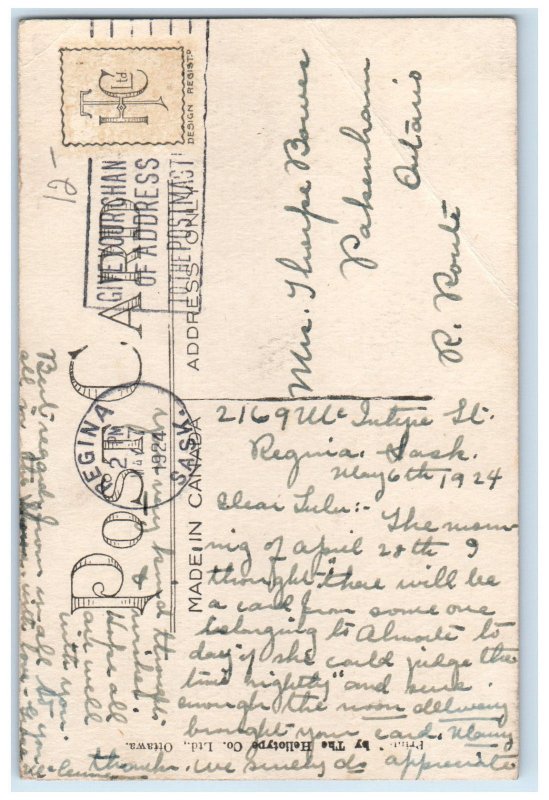 POST CARD
ADDRESS ONLY
MADE IN CANADA
Ltd
DESIGN REGIST'D
GIVE YOUR
OF ADDRESS
TO THE POSTMASTER
REGINA
2 PM
1924
SASK.
12-
Mrs. Thorpe Bowes
Pakenham
Ontario
R. Route
2169 McIntyre St.
Regina, Sask.
May 6th, 1924
Dear Lulu:-
The morn-
ing of April 28th I
thought "there will be
a card from some one
belonging to Almonte to
day if she could judge the
time rightly" and sure
enough the noon delivery
brought your card. Many
thanks. We surely do appreciate
very kind thought
&
Hope all
are well
with you.
Best regards from us all to you
all
by The Heliotype Co. Ltd., Ottawa.